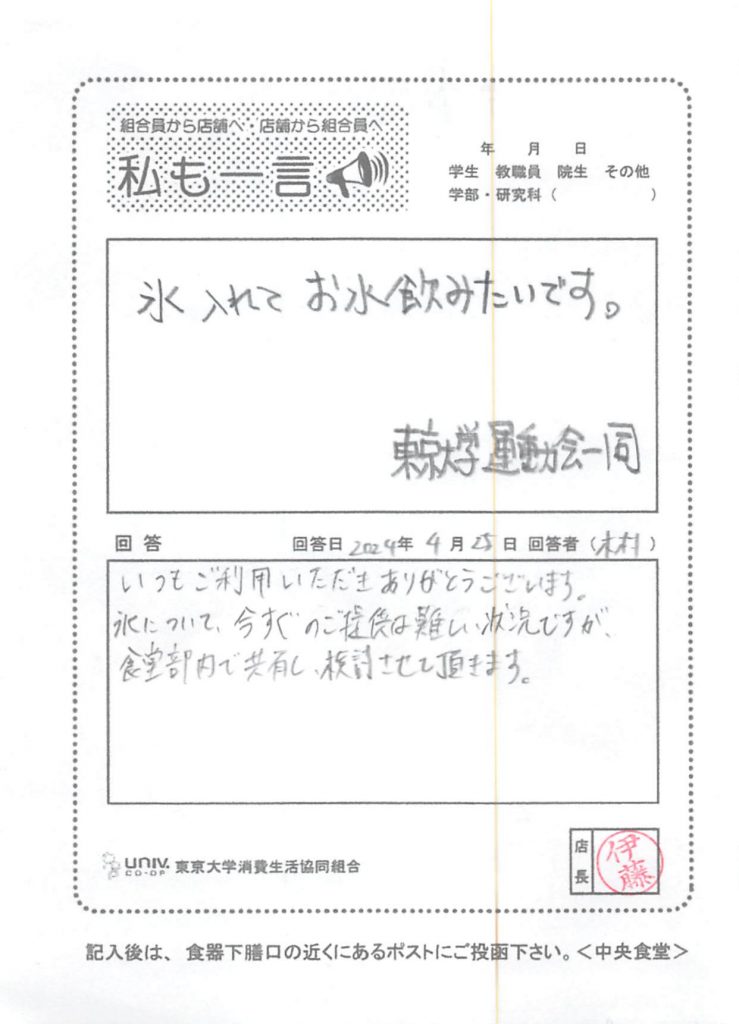 組合員から店舗へ・店舗から組合員へ
私も一言
年 月 日
学生 教職員 院生 その他
学部・研究科( )
氷入れてお水飲みたいです。
東京大学運動会一同
回答 回答日 2024年 4月 25日 回答者(木村)
いつもご利用いただきありがとうございます。
氷について、今すぐのご提供は難しい状況ですが、
食堂部内で共有し、検討させて頂きます。
UNIV.
CO-OP
東京大学消費生活協同組合
店長
伊藤
記入後は、食器下膳口の近くにあるポストにご投函下さい。<中央食堂>